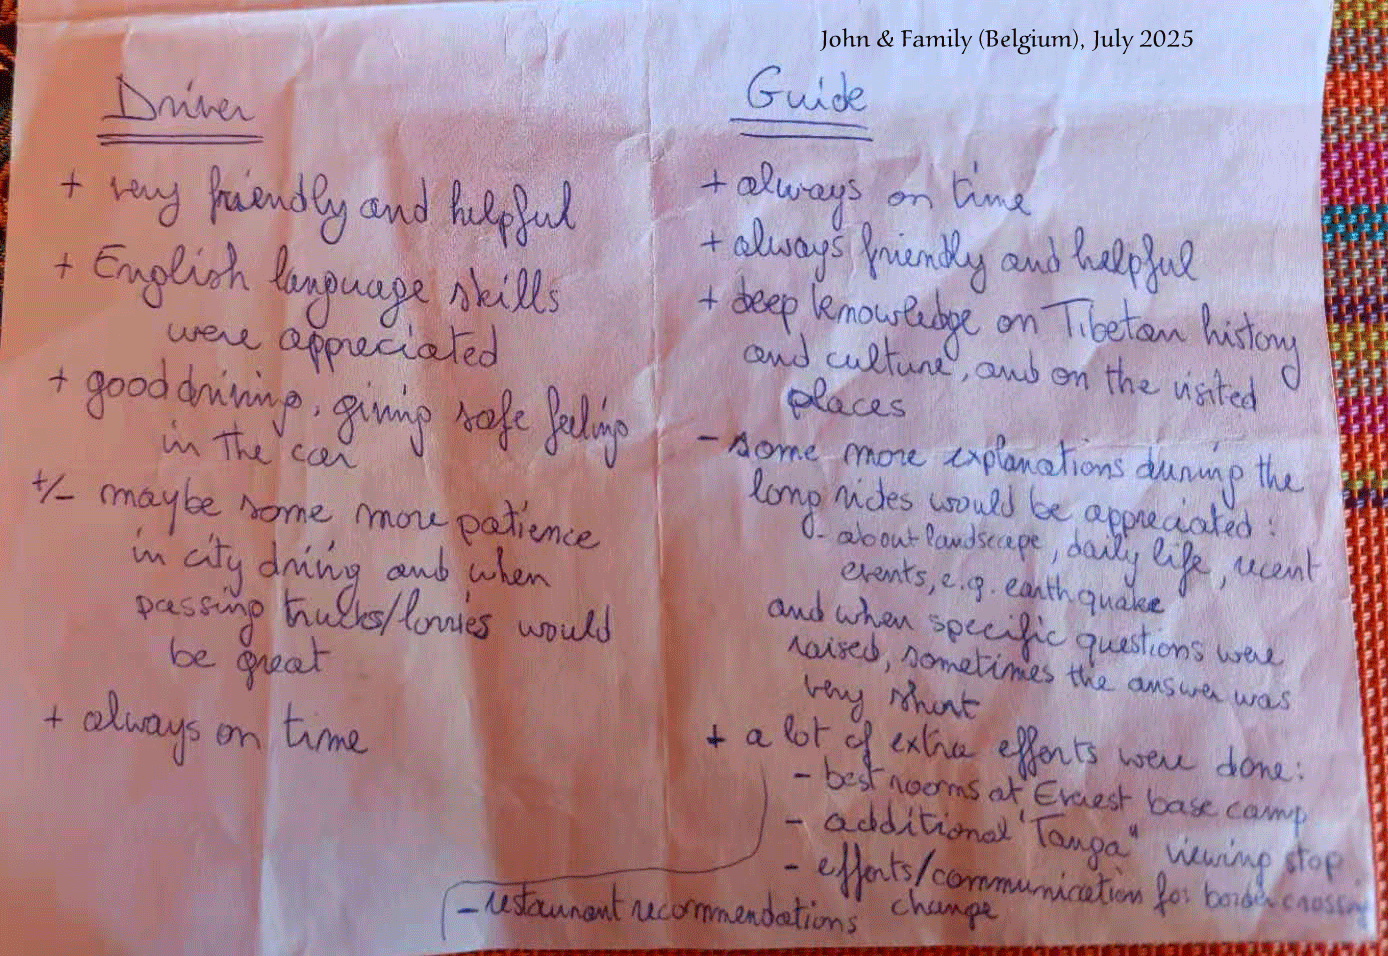 John & Family (Belgium), July 2025
Driver
+ very friendly and helpful
+ English language skills
were appreciated
+ good driving, giving safe feeling
in the car
+/- maybe some more patience
in city driving and when
passing trucks/lorries would
be great
+ always on time
Guide
+ always on time
+ always friendly and helpful
+ deep knowledge on Tibetan history
and culture, and on the visited
places
- some more explanations during the
long rides would be appreciated:
- about landscape, daily life, recent
events, e.g. earthquake
and when specific questions were
raised, sometimes the answer was
very short
+ a lot of extra efforts were done:
- best rooms at Everest base camp
- additional "Tanga" viewing stop
- efforts/communication for border crossing
change
- restaurant recommendations